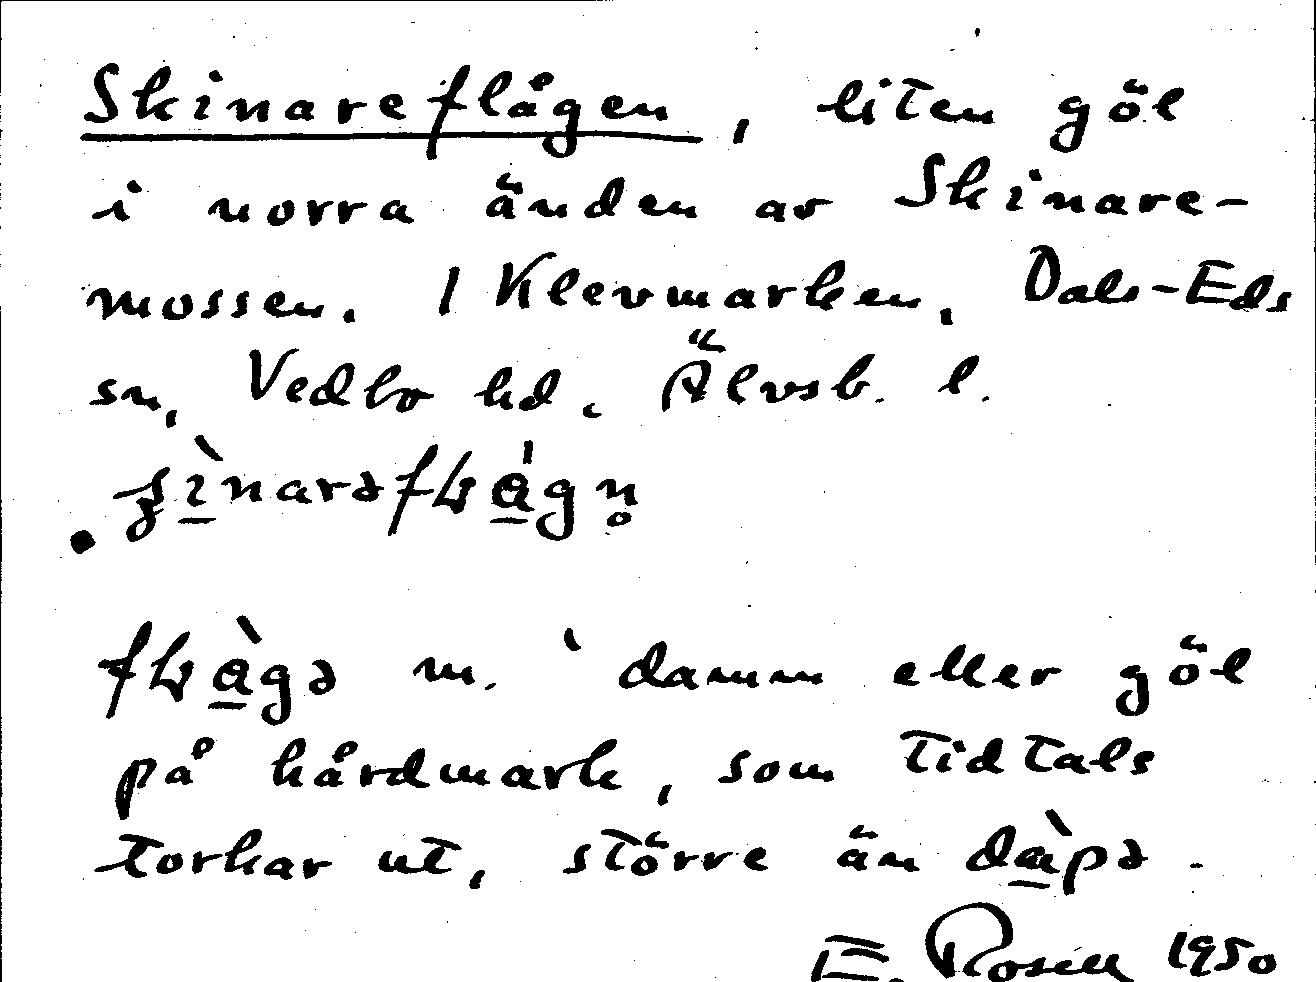 Skinareflågen, liten göl
i norra änden av Skinare-
mossen. I Klevmarken, Dals-Eds
sn, Vedbo hd. Älvsb. l.
damm eller göl
på hårdmark, som tidtals
torkar ut, större än
E. Rosell 1950